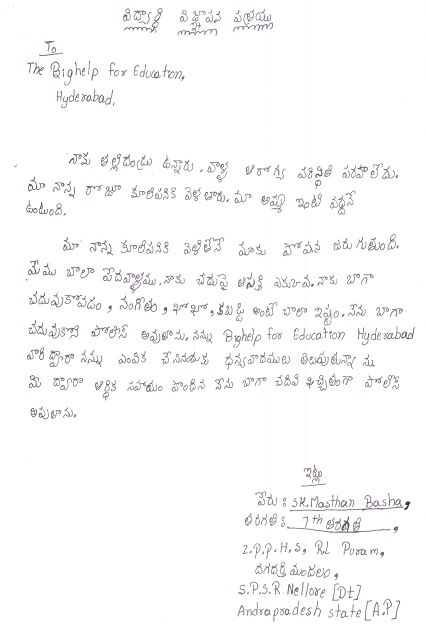 విద్యార్థి విజ్ఞాపన పత్రము
To
The Bighelp for Education,
Hyderabad,
నాకు తల్లిదండ్రు ఉన్నారు. వాళ్ళ ఆరోగ్య పరిస్థితి పరవాలేదు.
మా నాన్న రోజూ కూలిపనికి వెళతారు. మా అమ్మ ఇంటి వద్దనే
ఉంటుంది.
మా నాన్న కూలిపనికి వెళితేనే మాకు పోషన జరుగుతుంది.
మేము చాలా పేదవాళ్ళము. నాకు చదువుపై ఆసక్తి ఎకువ. నాకు బాగా
చదువుకోవడం, సంగీతం, ఖోఖో, కబడ్డి అంటే చాలా ఇష్టం. నేను బాగా
చదువుకొని పోలీస్ అవుతాను. నన్ను Bighelp for Education Hyderabad
వారి ద్వారా నన్ను ఎంపిక చేసినందుకు ధన్యవాదములు తెలుపుతున్నా ను
మీ ద్వారా ఆర్థిక సహాయం పొందిన నేను బాగా చదివి ఖచ్చితంగా పోలీస్
అవుతాను.
ఇట్లు
పేరు : SK. Masthan Basha,
తరగతి : 7th తరగతి,
Z.P.P.H.S, RL Puram,
దగదర్తి మండలం,
S.P.S.R Nellore [Dt]
Andrapradesh state [A.P]